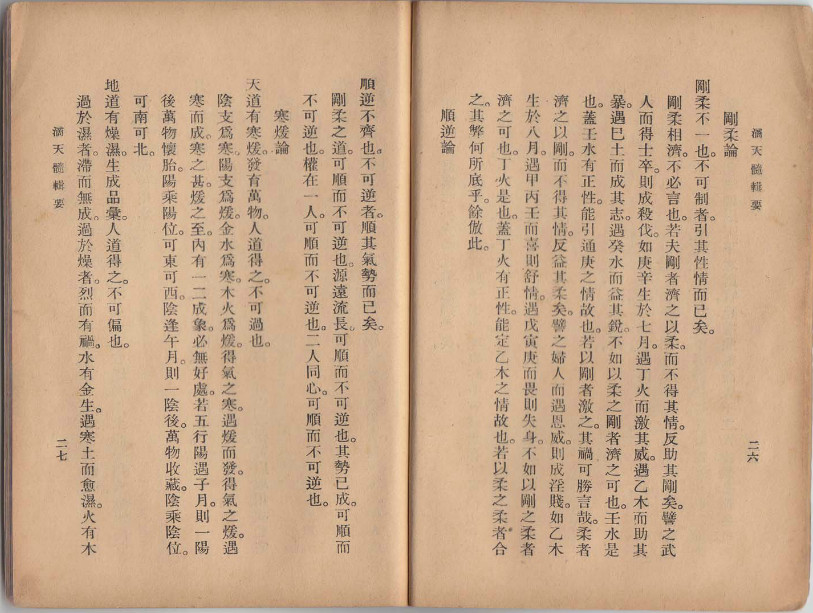 滴天髓輯要
二六
剛柔論
剛柔不一也。不可制者。引其性情而已矣。
剛柔相濟。不必言也。若夫剛者濟之以柔。而不得其情。反助其剛矣。譬之武
人而得士卒。則成殺伐。如庚辛生於七月。遇丁火而激其威。遇乙木而助其
暴。遇巳土而成其志。遇癸水而益其銳。不如以柔之剛者濟之可也。壬水是
也。蓋壬水有正性。能引通庚之情故也。若以剛者激之。其禍可勝言哉。柔者
濟之以剛而不得其情。反益其柔矣。譬之婦人而遇恩威。則成淫賤。如乙木
生於八月。遇甲丙壬而喜則舒情。遇戊寅庚而畏則失身。不如以剛之柔者
濟之可也。丁火是也。蓋丁火有正性。能定乙木之情故也。若以柔之柔者合
之。其弊何所底乎。餘倣此。
順逆論
順逆不齊也。不可逆者。順其氣勢而已矣。
剛柔之道。可順而不可逆也。源遠流長。可順而不可逆也。其勢已成。可順而
不可逆也。權在一人。可順而不可逆也。二人同心。可順而不可逆也。
寒煖論
天道有寒煖。發育萬物。人道得之。不可過也。
陰支爲寒。陽支爲煖。金水爲寒。木火爲煖。得氣之寒。遇煖而發。得氣之煖。遇
寒而成。寒之甚。煖之至。內有一二成象。必無好處。若五行陽遇子月。則一陽
後萬物懷胎。陽乘陽位。可東可西。陰逢午月。則一陰後。萬物收藏。陰乘陰位。
可南可北。
地道有燥濕。生成品彙。人道得之。不可偏也。
過於濕者。滯而無成。過於燥者。烈而有禍。水有金生。遇寒土而愈濕。火有木
滴天髓輯要
二七